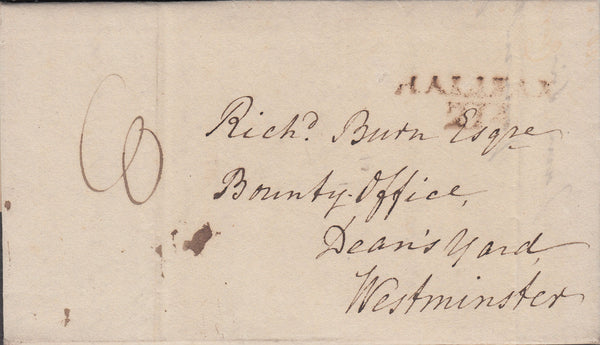 HALIFAX
Rich.d Burn Esq.re
Bounty Office,
Dean's Yard,
Westminster